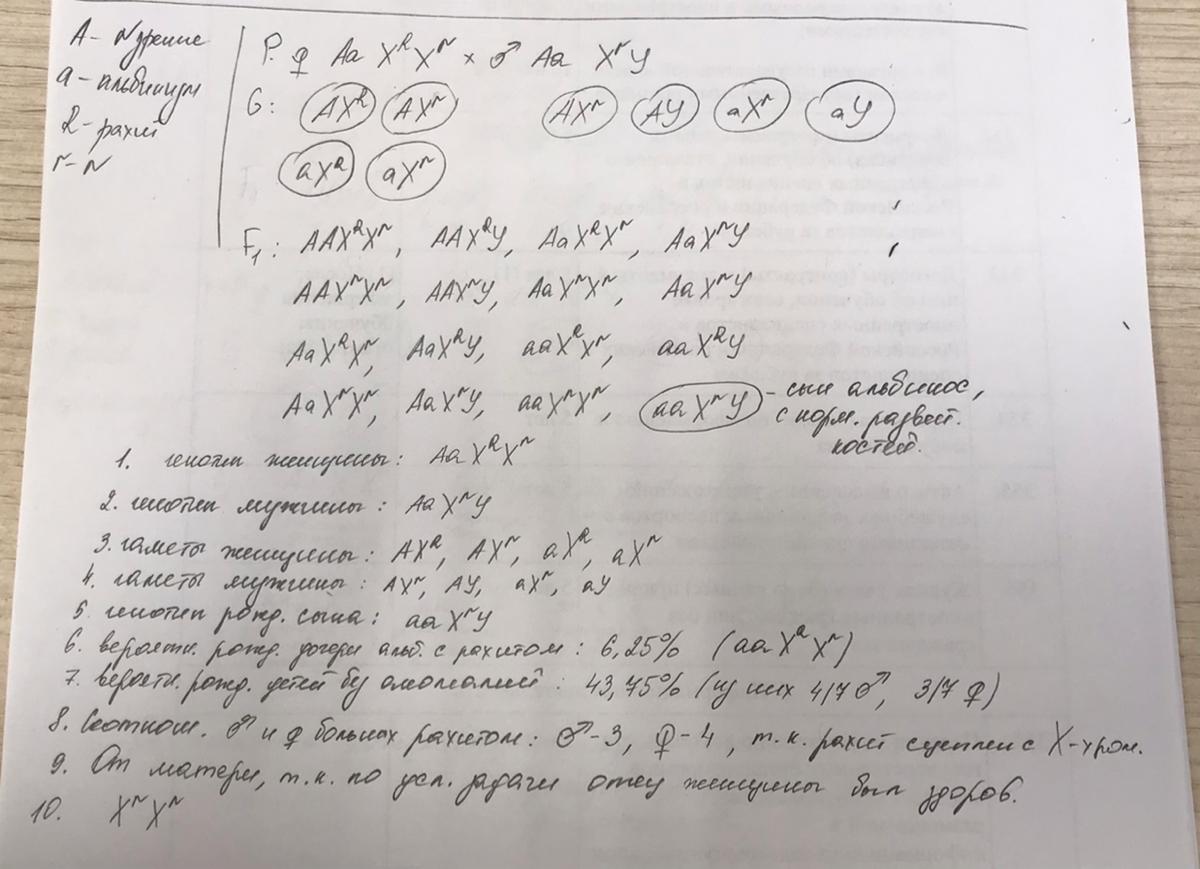 A - N зрение
a - альбинизм
R - рахит
r - N
P: ♀ Aa Xᴿ Xʳ × ♂ Aa XʳY
G: AXᴿ AXʳ AXʳ AY aXʳ aY
aXᴿ aXʳ
F₁: AAXᴿXʳ, AAXᴿY, AaXᴿXʳ, AaXʳY
AAXʳXʳ, AAXʳY, AaXʳXʳ, AaXʳY
AaXᴿXʳ, AaXᴿY, aaXᴿXʳ, aaXᴿY
AaXʳXʳ, AaXʳY, aaXʳXʳ, aaXʳY - сын альбинос,
с норм. развит.
костей.
1. генотип женщины: AaXᴿXʳ
2. генотип мужчины: AaXʳY
3. гаметы женщины: AXᴿ, AXʳ, aXᴿ, aXʳ
4. гаметы мужчины: AXʳ, AY, aXʳ, aY
5. генотип рожд. сына: aaXʳY
6. вероятн. рожд. дочери альб. с рахитом: 6,25% (aaXᴿXʳ)
7. вероятн. рожд. детей без аномалий: 43,75% (из них 4/7 ♂, 3/7 ♀)
8. Соотнош. ♂ и ♀ больных рахитом: ♂-3, ♀-4, т.к. рахит сцеплен с X-хром.
9. От матери, т.к. по усл. задачи отец женщины был здоров.
10. XʳXʳ